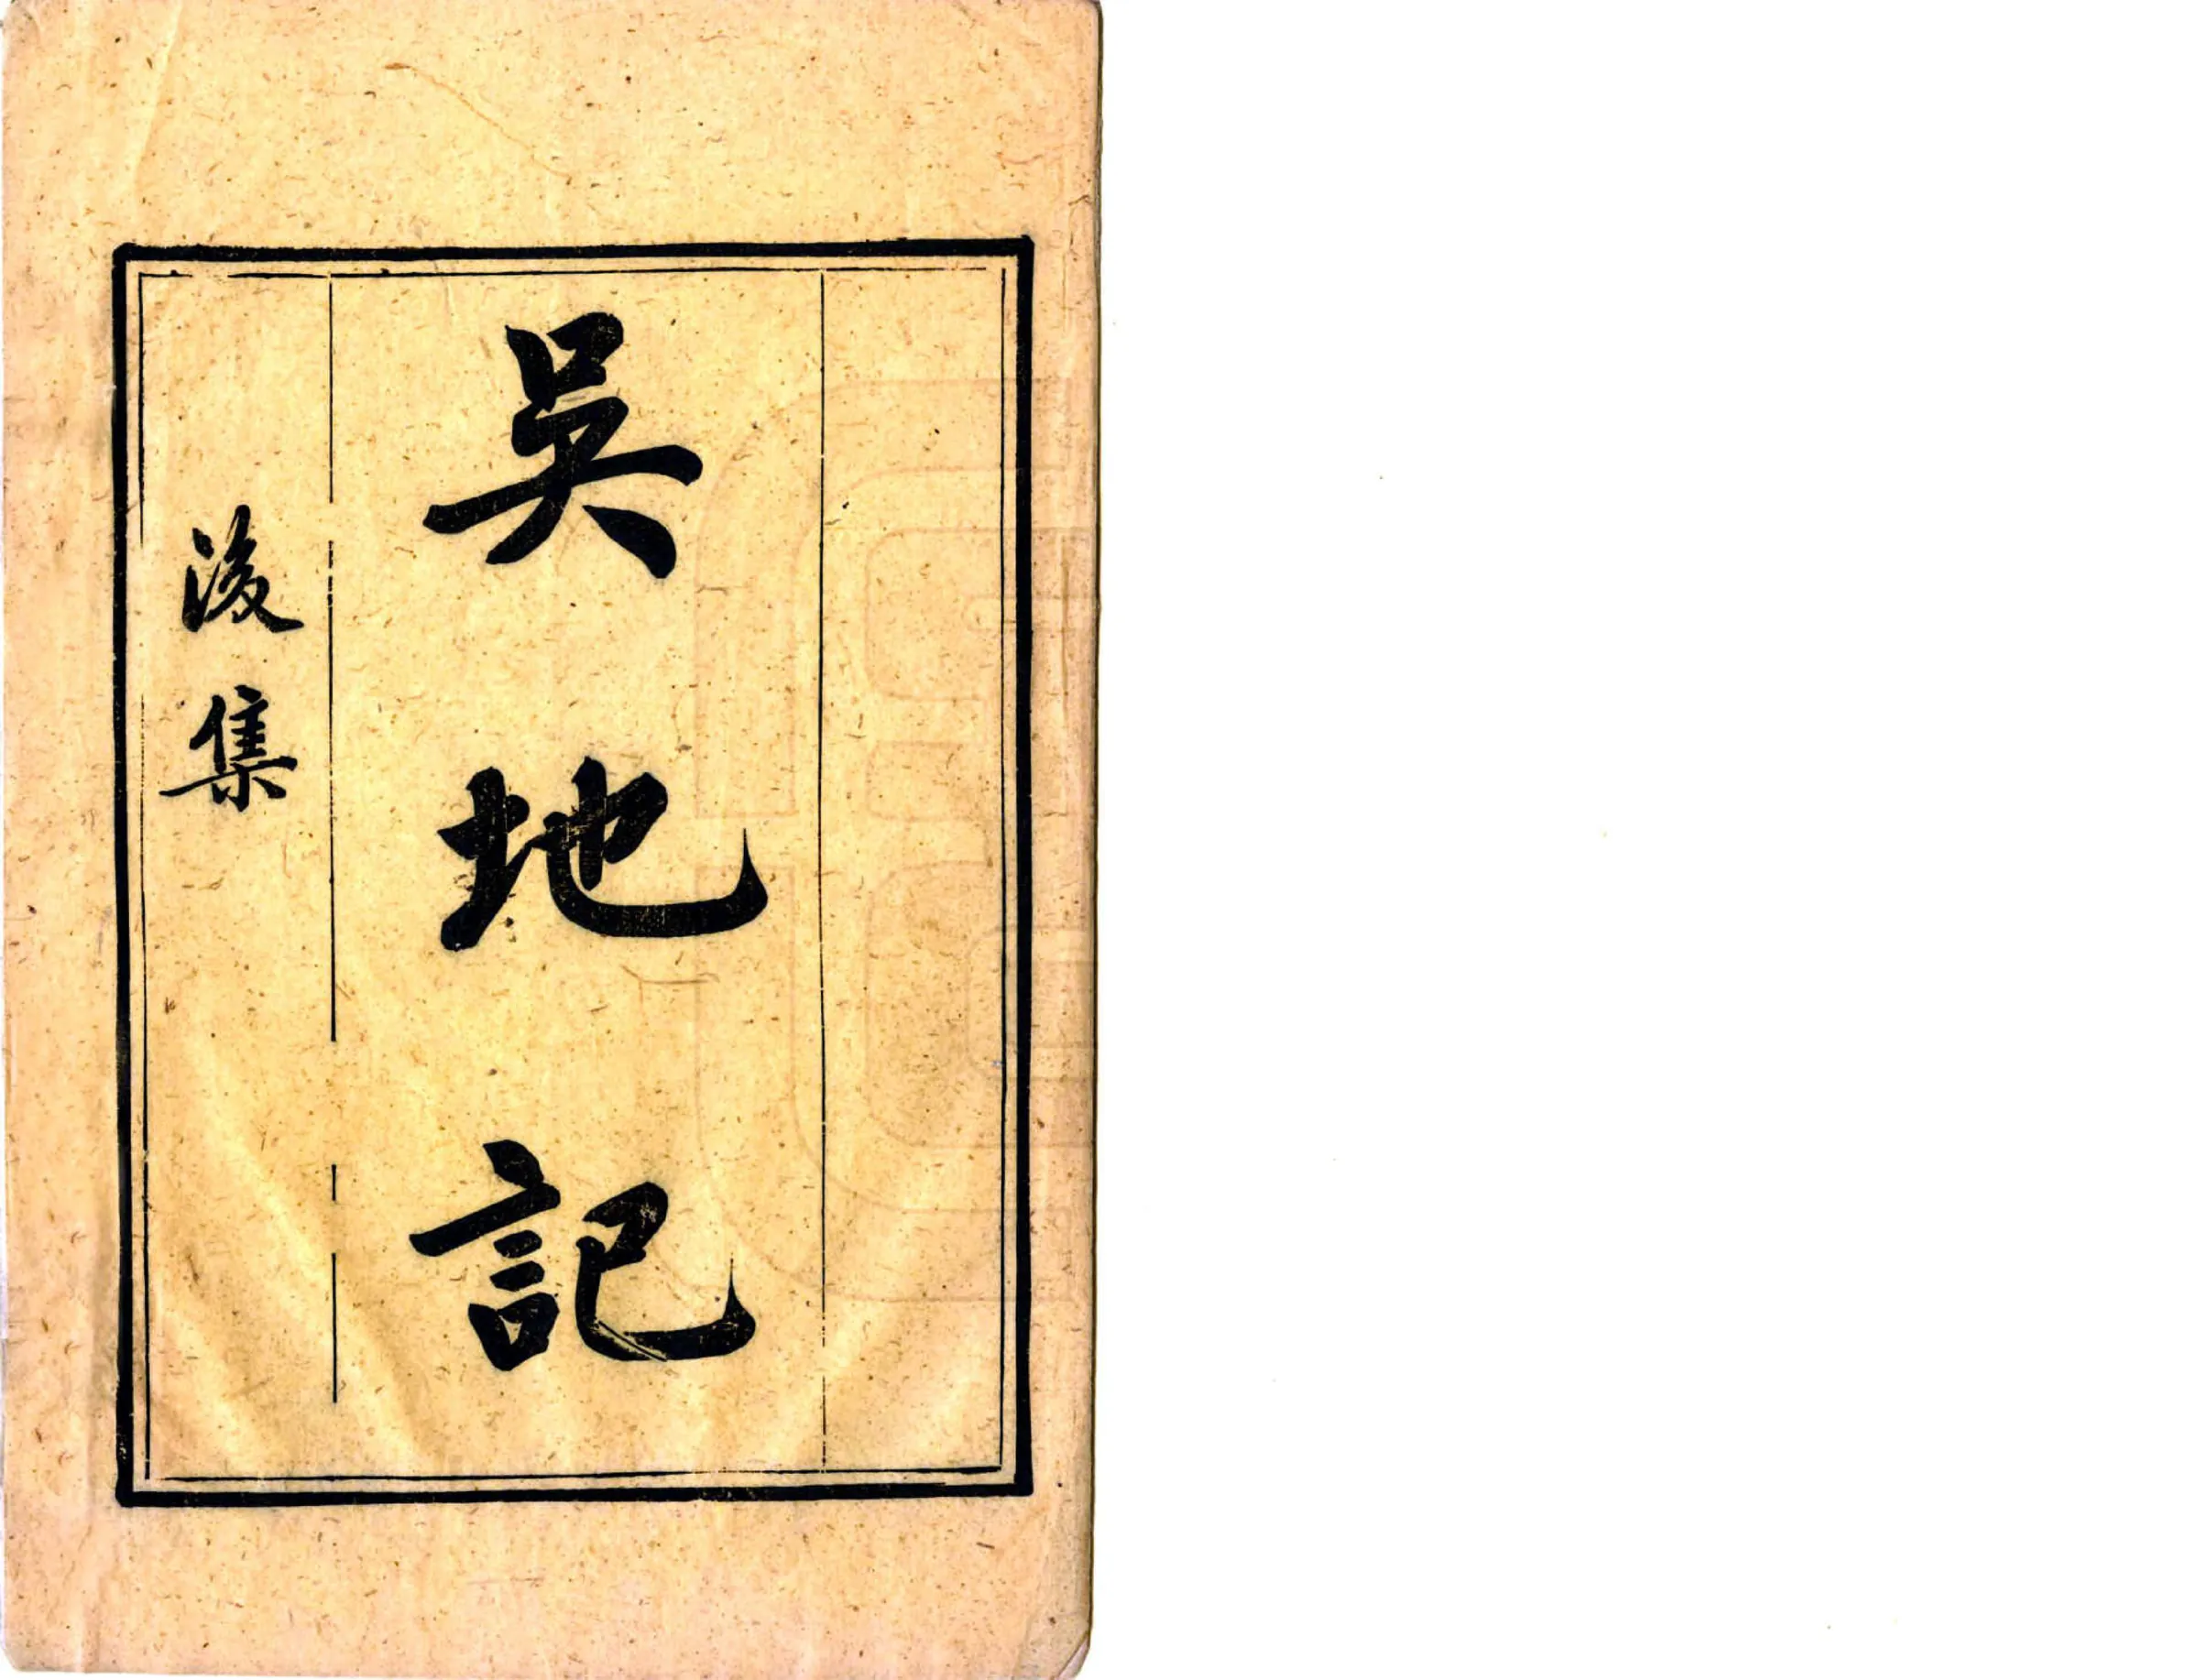 吳地記
後集